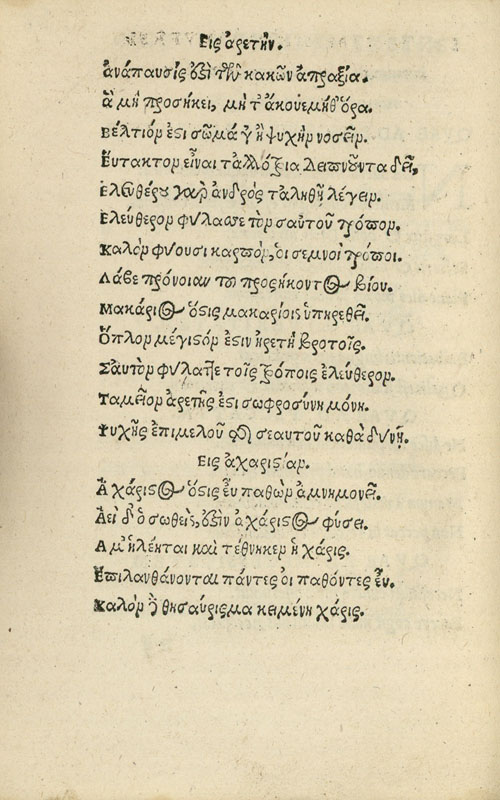 Εἰς ἀρετήν.
ἀνάπαυσίς ἐστι τῶν κακῶν ἀπραξία.
ἃ μὴ προσήκει, μήτ᾽ ἄκουε μήθ᾽ ὅρα.
Βέλτιόν ἐστι σῶμά γ᾽ ἢ ψυχὴν νοσεῖν.
Εὔτακτον εἶναι τἀλλότρια δειπνοῦντα δεῖ,
Ἐλευθέρου γὰρ ἀνδρὸς τἀληθῆ λέγειν.
Ἐλεύθερον φύλαττε τὸν σαυτοῦ τρόπον.
Καλὸν φύουσι καρπὸν, οἱ σεμνοὶ τρόποι.
Λάβε πρόνοιαν τοῦ προσήκοντος βίου.
Μακάριος ὅστις μακαρίοις ὑπηρετεῖ.
Ὅπλον μέγιστόν ἐστιν ἡρετὴ βροτοῖς.
Σαυτὸν φύλαττε τοῖς τρόποις ἐλεύθερον.
Ταμεῖον ἀρετῆς ἐστι σωφροσύνη μόνη.
Ψυχῆς ἐπιμελοῦ τῆς σεαυτοῦ καθὰ δύνῃ.
Εἰς ἀχαριστίαν.
Ἀχάριστος ὅστις εὖ παθὼν ἀμνημονεῖ.
Ἀεὶ δ᾽ ὁ σωθεὶς, ἐστὶν ἀχάριστος φύσει.
Ἅμ᾽ ἠλέηται καὶ τέθνηκεν ἡ χάρις.
Ἐπιλανθάνονται πάντες οἱ παθόντες εὖ.
Καλὸν τὸ θησαύρισμα κειμένη χάρις.